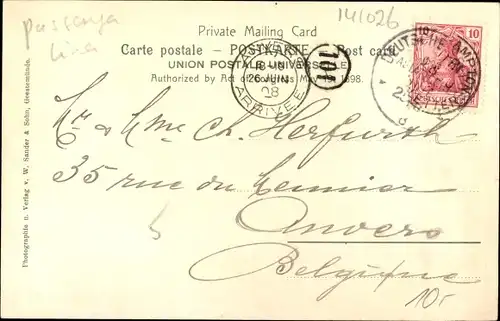 141026
Private Mailing Card
Carte postale – POSTKARTE – Post card
UNION POSTALE UNIVERSELLE
Authorized by Act of Congress May 19, 1898.
26 JUIN
08
ARRIVÉE
101
DEUTSCHE
10
Mr & Mme Ch. Herfurth
35 rue du
Anvers
Belgique
10,-
Photographie u. Verlag v. W. Sander & Sohn, Geestemünde.